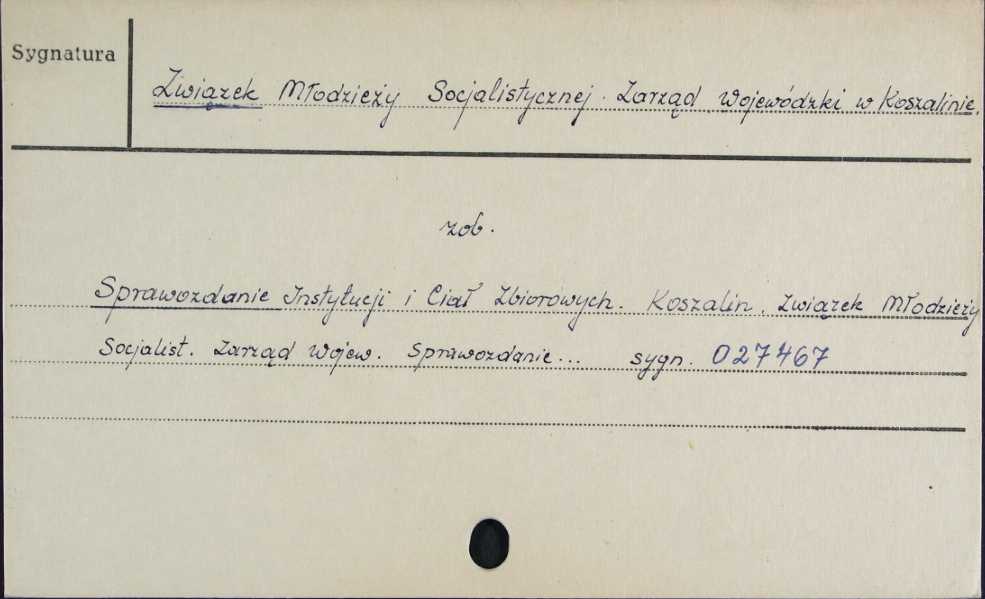 Sygnatura
Związek Młodzieży Socjalistycznej. Zarząd Wojewódzki w Koszalinie.
zob.
Sprawozdanie Instytucji i Ciał Zbiorowych. Koszalin. Związek Młodzieży
Socjalist. Zarząd Wojew. Sprawozdanie... sygn. 027467